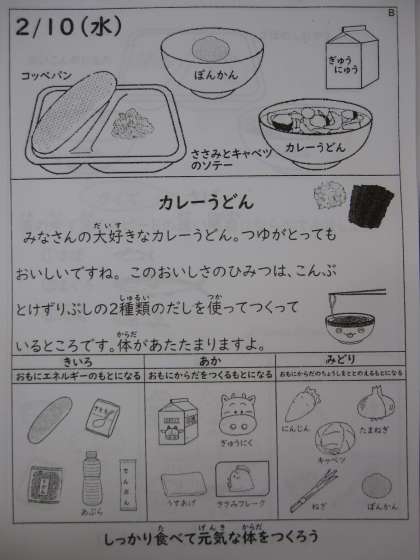 B
2/10(水)
コッペパン
ぽんかん
ぎゅう
にゅう
ささみとキャベツ
のソテー
カレーうどん
カレーうどん
みなさんの大好きなカレーうどん。つゆがとっても
だいす
おいしいですね。このおいしさのひみつは、こんぶ
とけずりぶしの2種類のだしを使ってつくって
しゅるい
つか
いるところです。体があたたまりますよ。
からだ
きいろ
あか
みどり
おもにエネルギーのもとになる
おもにからだをつくるもとになる
おもにからだのちょうしをととのえるもとになる
あぶら
でんぷん
ぎゅうにく
うすあげ
ささみフレーク
にんじん
たまねぎ
キャベツ
ねぎ
ぽんかん
しっかり食べて元気な体をつくろう
た
げんき
からだ